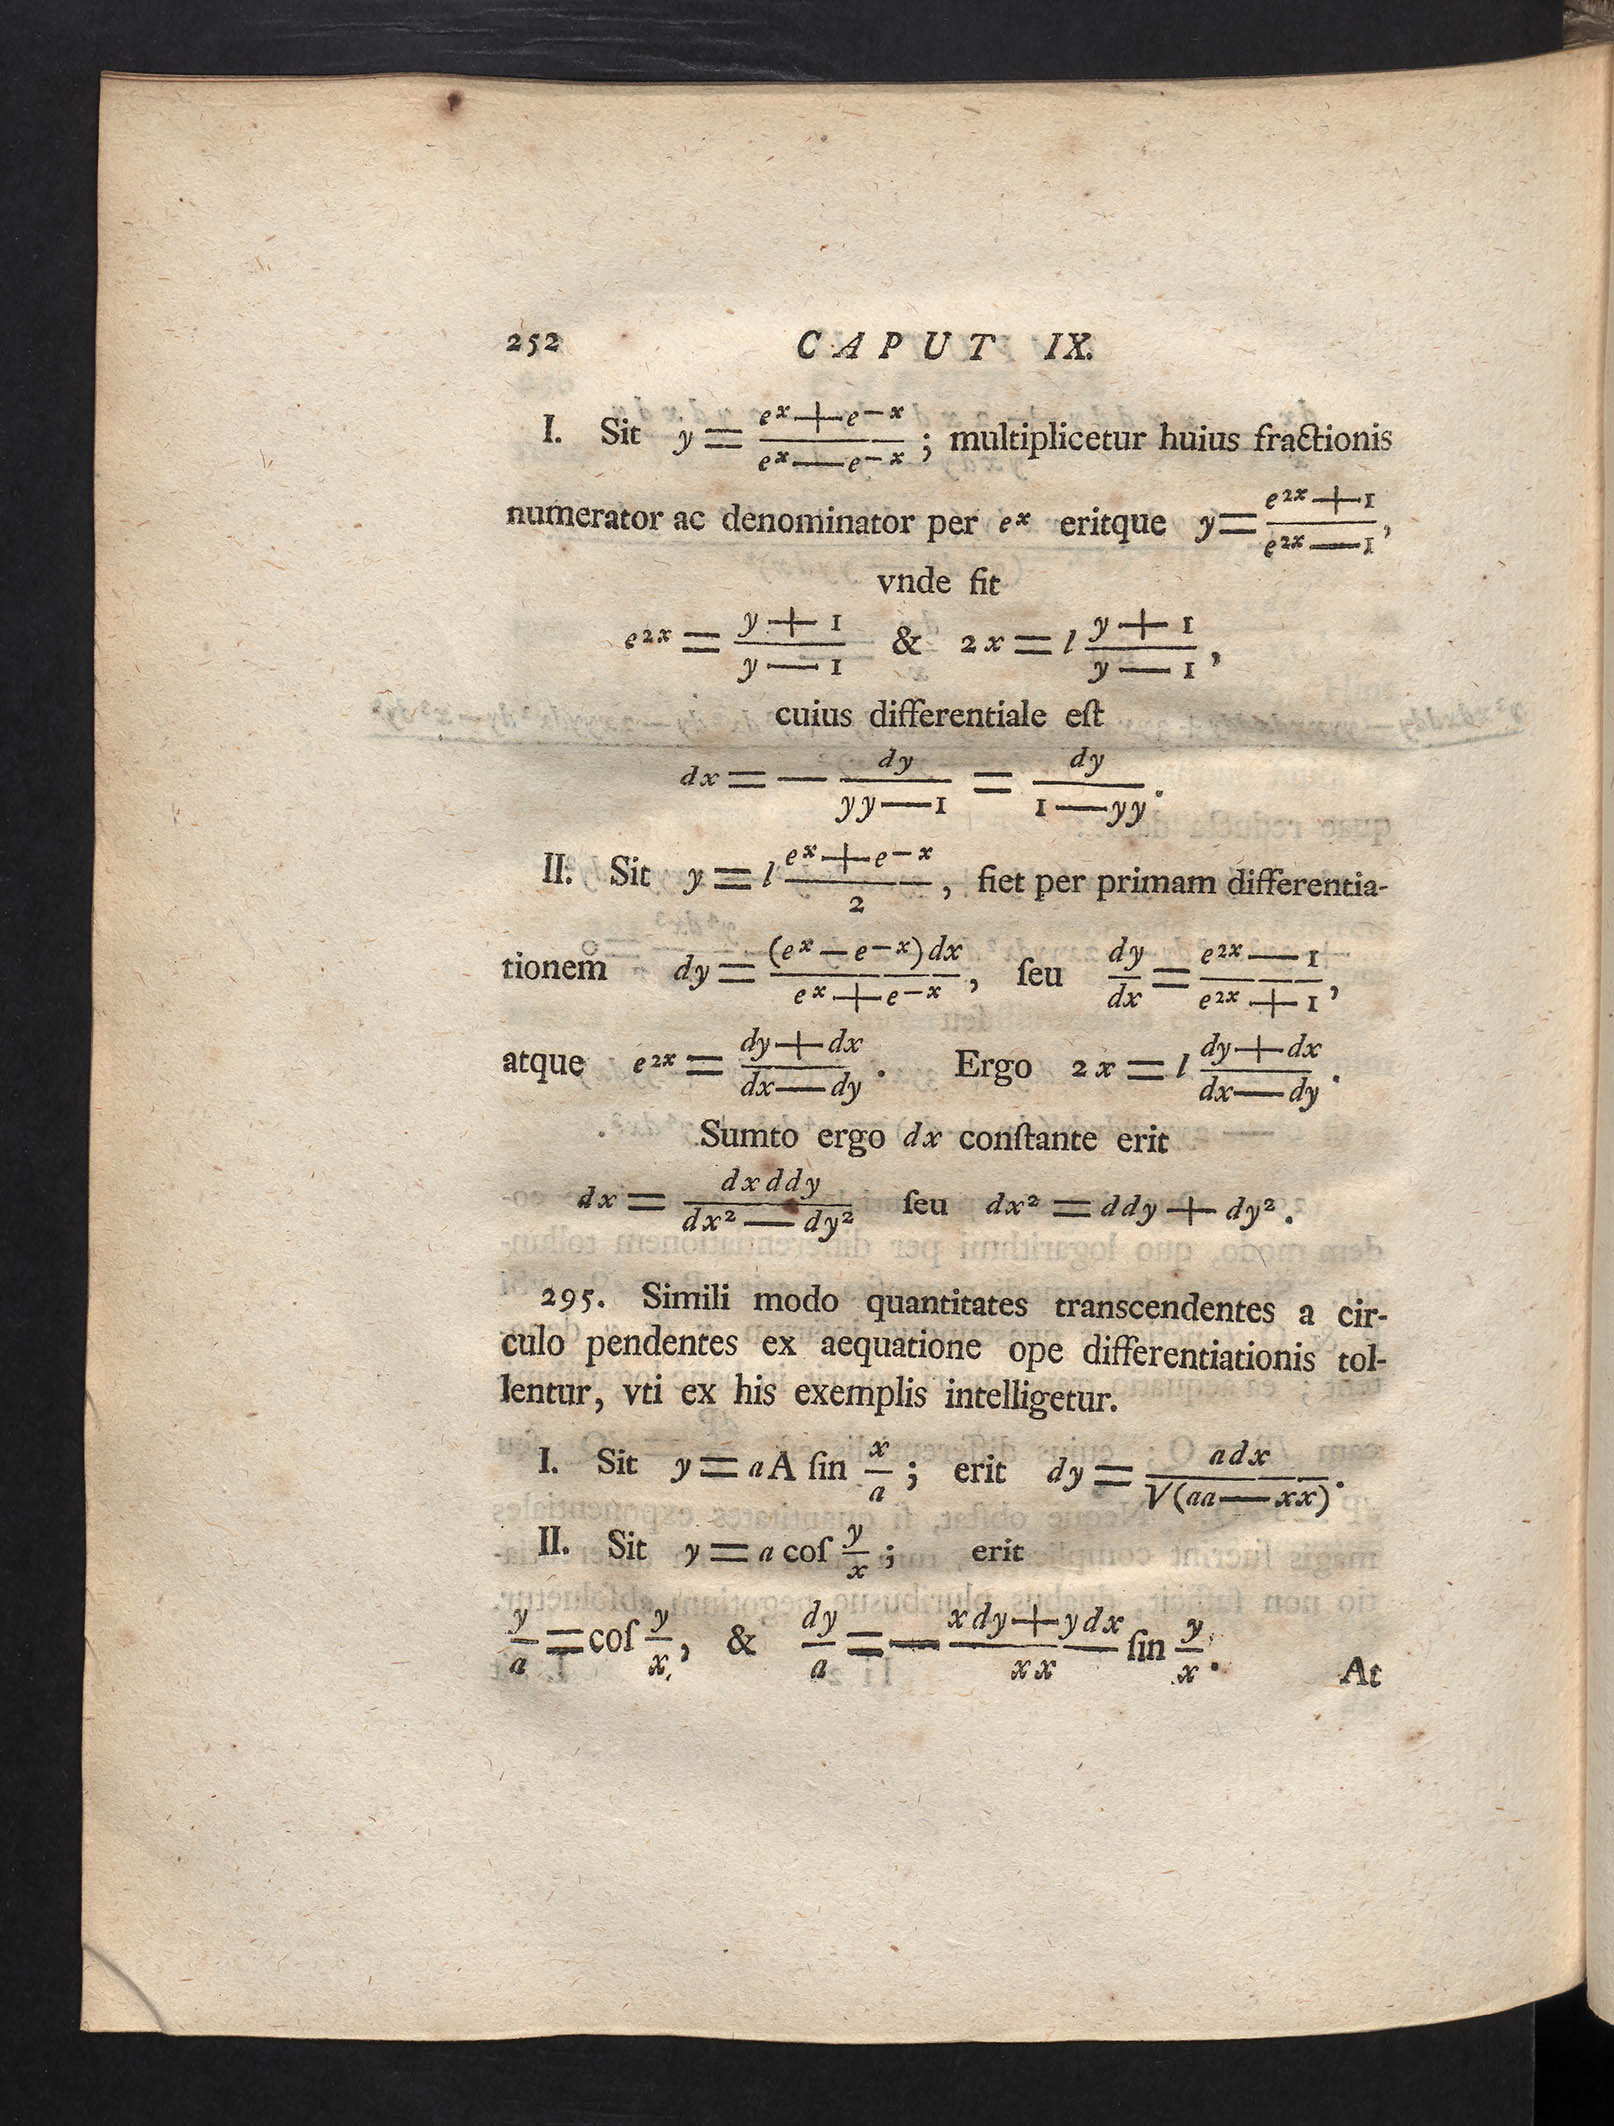 252 CAPUT IX.
I. Sit y = (eˣ + e⁻ˣ)/(eˣ — e⁻ˣ) ; multiplicetur huius fractionis
numerator ac denominator per eˣ eritque y = (e²ˣ + 1)/(e²ˣ — 1),
vnde fit
e²ˣ = (y + 1)/(y — 1) & 2x = l (y + 1)/(y — 1),
cuius differentiale eſt
dx = — dy/(yy — 1) = dy/(1 — yy).
II. Sit y = l (eˣ + e⁻ˣ)/2, fiet per primam differentia-
tionem dy = (eˣ — e⁻ˣ) dx/(eˣ + e⁻ˣ), ſeu dy/dx = (e²ˣ — 1)/(e²ˣ + 1),
atque e²ˣ = (dy + dx)/(dx — dy). Ergo 2x = l (dy + dx)/(dx — dy).
Sumto ergo dx conſtante erit
dx = dx ddy/(dx² — dy²) ſeu dx² = ddy + dy².
295. Simili modo quantitates transcendentes a cir-
culo pendentes ex aequatione ope differentiationis tol-
lentur, vti ex his exemplis intelligetur.
I. Sit y = a A ſin x/a ; erit dy = a dx/√(aa — xx).
II. Sit y = a coſ y/x ; erit
y/a = coſ y/x, & dy/a = — (x dy + y dx)/xx ſin y/x.
At